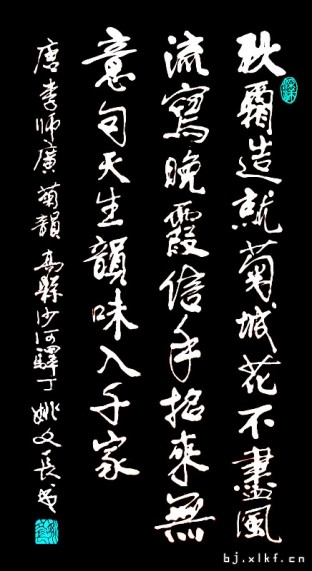 秋霜造就菊城花不盡風
流寫晚霞信手拈來無
意句天生韻味入千家
唐李師廣菊韻高縣沙河驛丁姚文長书
bj.xlkf.cn